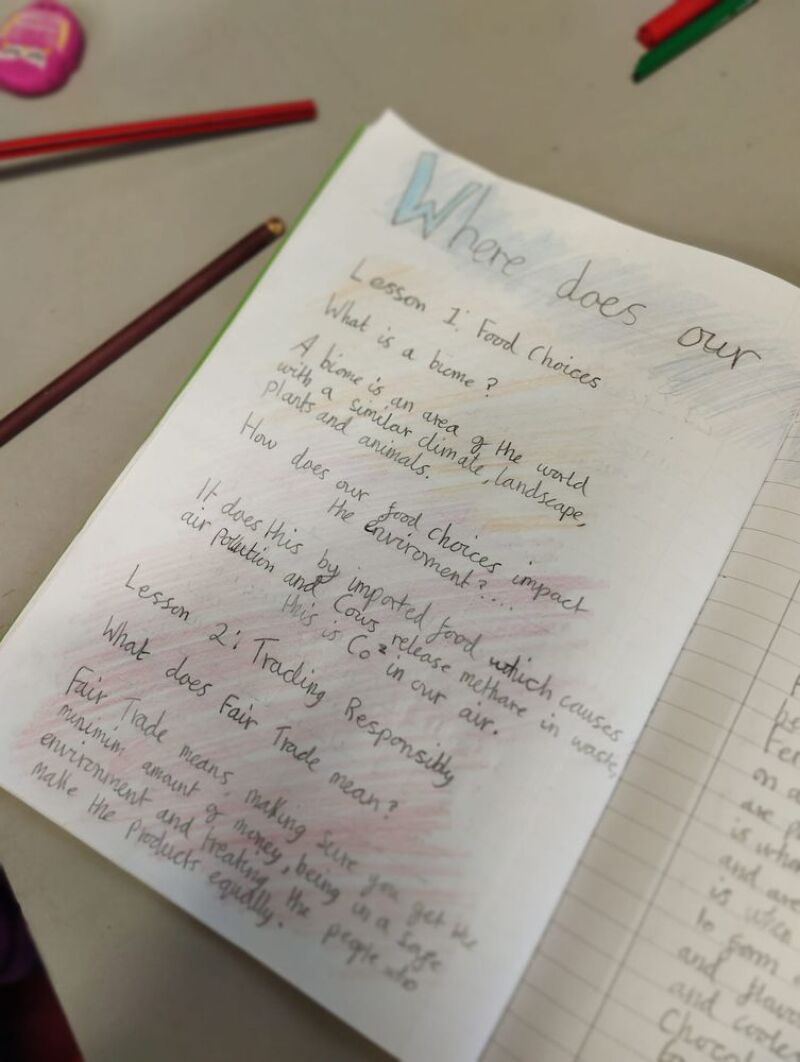 Where does our
Lesson 1: Food Choices
What is a biome?
A biome is an area of the world
with a similar climate, landscape,
plants and animals.
How does our food choices impact
the enviroment?....
It does this by imported food which causes
air pollution and Cows release methare in waste,
this is Co² in our air.
Lesson 2: Trading Responsibly
What does Fair Trade mean?
Fair Trade means, making sure you get the
minimim amount of money, being in a safe
environment and treaking the people who
make the products equally.
on a
are p
is
and are
is
to form
and flavo
and
Choc